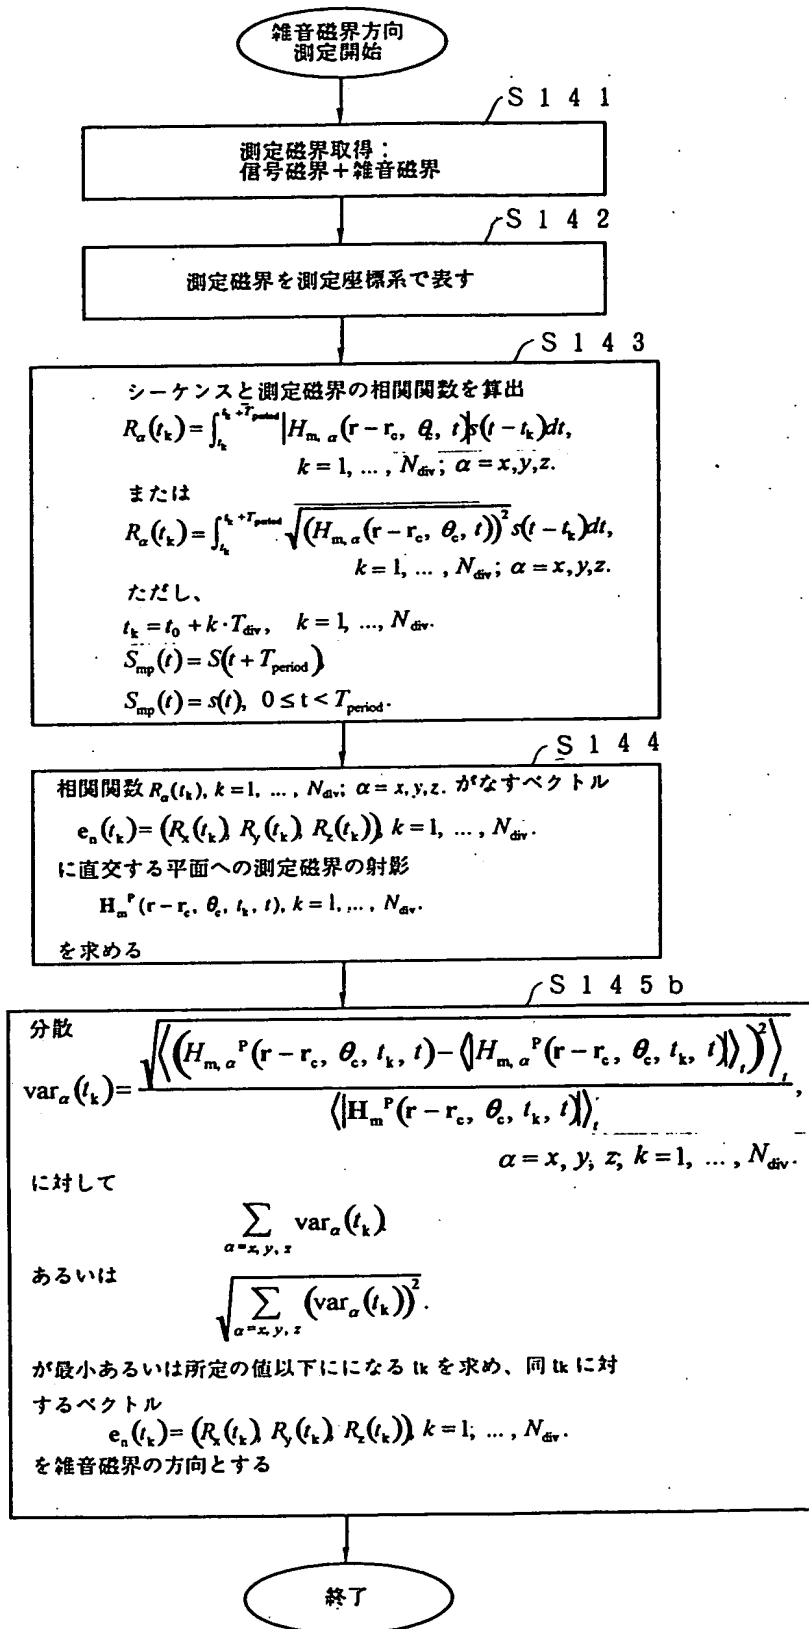 雑音磁界方向
測定開始
S141
測定磁界取得：
信号磁界＋雑音磁界
S142
測定磁界を測定座標系で表す
S143
シーケンスと測定磁界の相関関数を算出
R_α(t_k) = ∫_{t_k}^{t_k+T_period} |H_{m,α}(r − r_c, θ_c, t)| s(t − t_k)dt,
k = 1, ..., N_div; α = x,y,z.
または
R_α(t_k) = ∫_{t_k}^{t_k+T_period} √(H_{m,α}(r − r_c, θ_c, t))² s(t − t_k)dt,
k = 1, ..., N_div; α = x,y,z.
ただし、
t_k = t_0 + k·T_div, k = 1, ..., N_div.
S_mp(t) = S(t + T_period)
S_mp(t) = s(t), 0 ≤ t < T_period.
S144
相関関数 R_α(t_k), k = 1, ..., N_div; α = x,y,z. がなすベクトル
e_n(t_k) = (R_x(t_k), R_y(t_k), R_z(t_k)), k = 1, ..., N_div.
に直交する平面への測定磁界の射影
H_m^P(r − r_c, θ_c, t_k, t), k = 1, ..., N_div.
を求める
S145b
分散
var_α(t_k) = √⟨(H_{m,α}^P(r − r_c, θ_c, t_k, t) − ⟨|H_{m,α}^P(r − r_c, θ_c, t_k, t)|⟩_t)²⟩_t / ⟨|H_m^P(r − r_c, θ_c, t_k, t)|⟩_t,
α = x, y, z, k = 1, ..., N_div.
に対して
∑_{α=x, y, z} var_α(t_k)
あるいは
√∑_{α=x, y, z} (var_α(t_k))².
が最小あるいは所定の値以下にになる tk を求め、同 tk に対
するベクトル
e_n(t_k) = (R_x(t_k), R_y(t_k), R_z(t_k)), k = 1; ..., N_div.
を雑音磁界の方向とする
終了